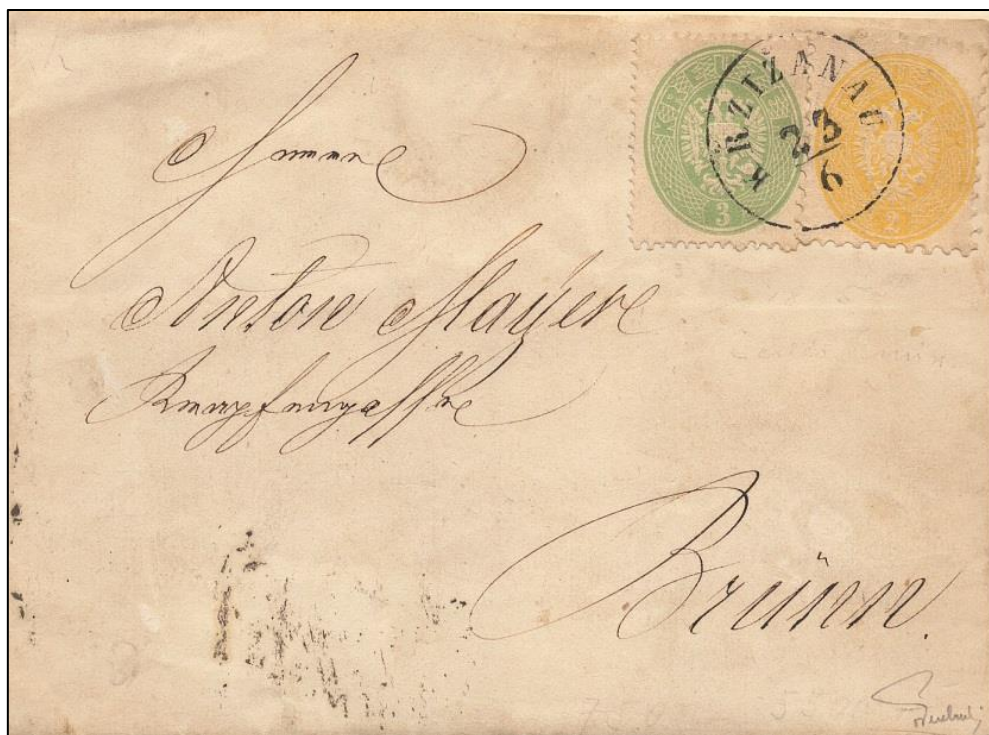 KRZIŽANAU
23
6
3
2
Herrn
Anton Mayer
Krapfengasse
Brünn.